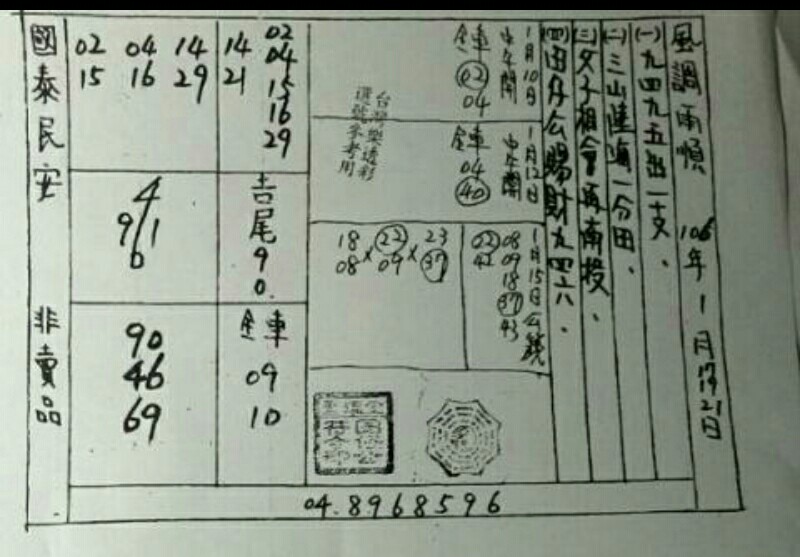 風調雨順 106年1月17 19 21日
(一)九四九五出一支、
(二)三山陸
一分田、
(三)女子相會再南投、
(四)田仔公賜財九四六、
1月10日
中午開
全車
02
04
1月12日
中午開
全車
04
40
台灣樂透彩
選號參考用
1月15日公號
02 08
42 09
18
37
43
18 × 22 × 23
08 09 37
02
14 04
21 15
16
29
02 04 14
15 16 29
吉尾
9
0
4
9/1
6
全車
09
10
90
46
69
國泰民安 非賣品
04.8968596